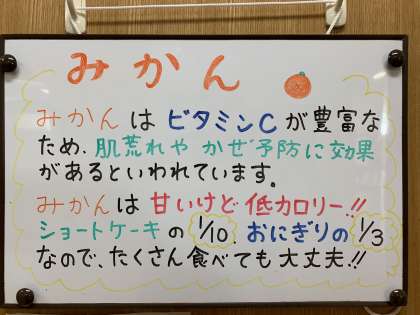 みかん
みかんは ビタミンCが豊富な
ため、肌荒れや かぜ予防に効果
があるといわれています。
みかんは甘いけど 低カロリー!!
ショートケーキの 1/10、おにぎりの 1/3
なので、たくさん食べても大丈夫!!